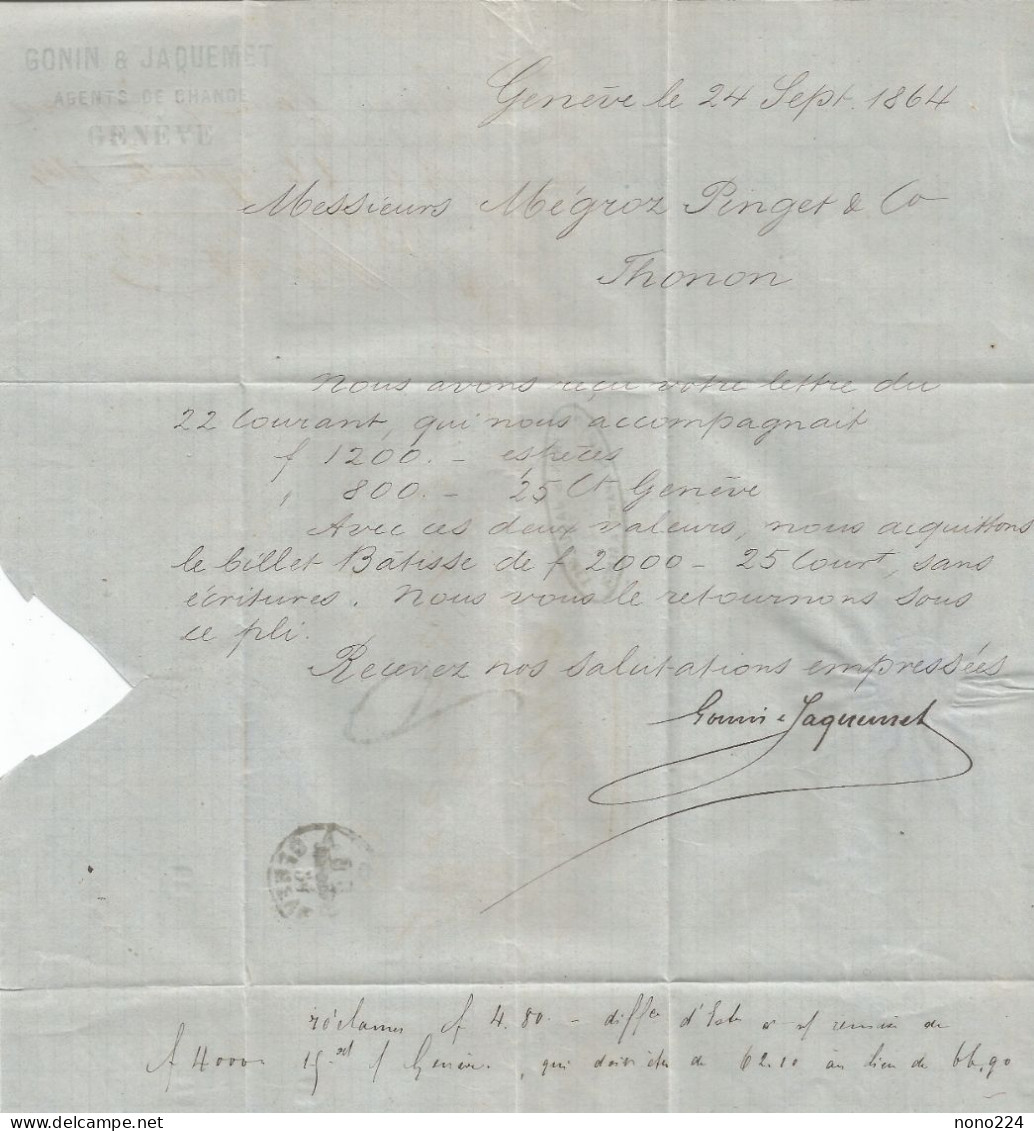 GONIN & JAQUEMET
AGENTS DE CHANGE
GENÈVE
Genève le 24 Sept. 1864
Messieurs Mégroz Pinget & Co
Thonon
Nous avons reçu votre lettre du
22 Courant, qui nous accompagnait
f 1200. - espèces
" 800. - 25 Ct Genève
Avec ces deux valeurs, nous acquittons
le billet Bâtisse de f 2000 - 25 Court, sans
écritures. Nous vous le retournons sous
ce pli.
Recevez nos salutations empressées
Gonin & Jaquemet
GENEVE
réclamer f 4.80. - differ d'Esc
f 4000 15 Genève. , qui doit être de 62.10 au lieu de 66.90
nono224